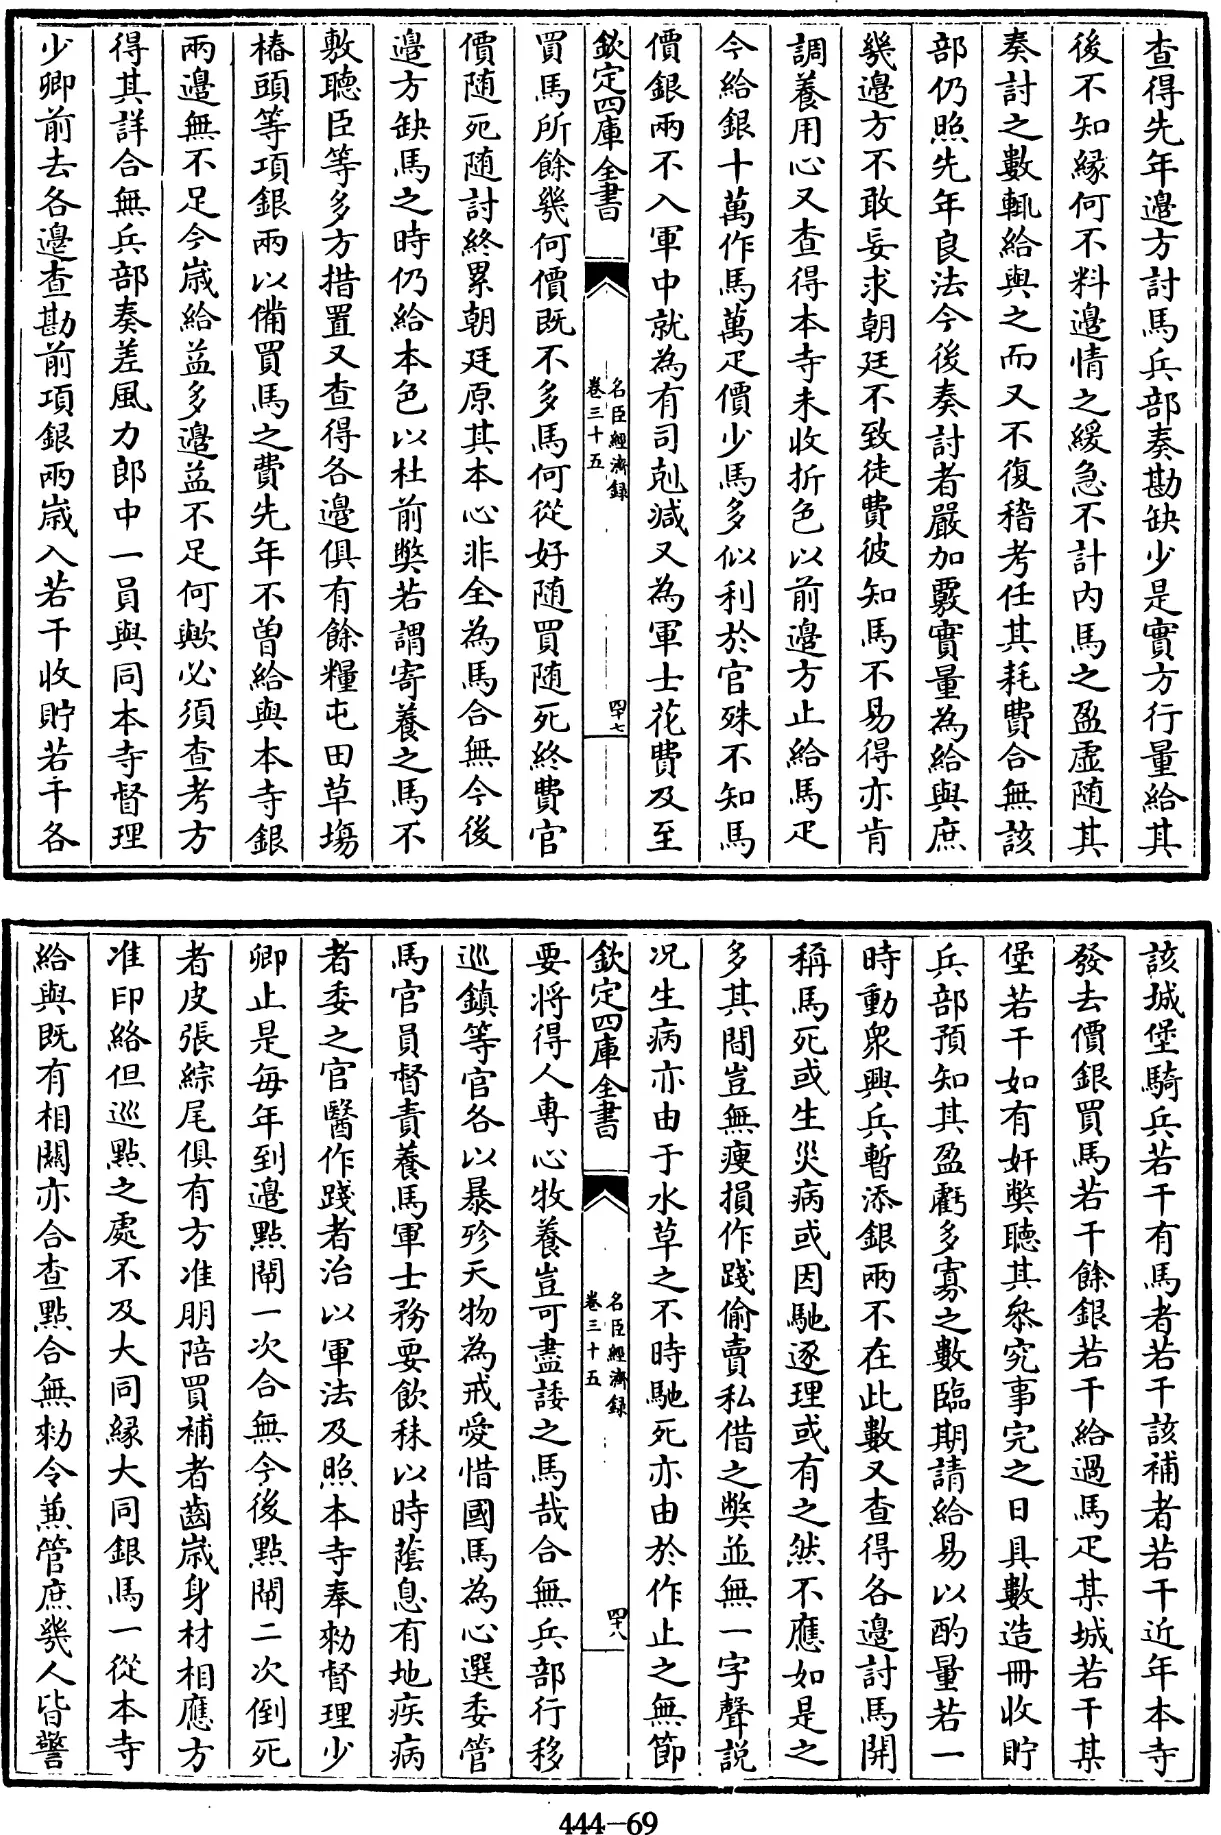 查得先年邉方討馬兵部奏勘缺少是實方行量給其
後不知緣何不料邉情之緩急不計内馬之盈虚随其
奏討之數輒給與之而又不復稽考任其耗費合無該
部仍照先年良法今後奏討者嚴加覈實量為給與庶
幾邉方不敢妄求朝廷不致徒費彼知馬不易得亦肯
調養用心又查得本寺未收折色以前邉方止給馬疋
今給銀十萬作馬萬疋價少馬多似利於官殊不知馬
價銀兩不入軍中就為有司剋減又為軍士花費及至
欽定四庫全書
名臣經濟録
卷三十五
四十七
買馬所餘幾何價既不多馬何從好随買随死終費官
價随死随討終累朝廷原其本心非全為馬合無今後
邉方缺馬之時仍給本色以杜前獘若謂寄養之馬不
敷聴臣等多方措置又查得各邉俱有餘糧屯田草塲
樁頭等項銀兩以備買馬之費先年不曽給與本寺銀
兩邉無不足今歳給益多邉益不足何歟必須查考方
得其詳合無兵部奏差風力郎中一員與同本寺督理
少卿前去各邉查勘前項銀兩歳入若干收貯若干各
該城堡騎兵若干有馬者若干該補者若干近年本寺
發去價銀買馬若干餘銀若干給過馬疋某城若干某
堡若干如有奸獘聴其叅究事完之日具數造冊收貯
兵部預知其盈虧多寡之數臨期請給易以酌量若一
時動衆興兵暫添銀兩不在此數又查得各邉討馬開
稱馬死或生災病或因馳逐理或有之然不應如是之
多其間豈無瘦損作踐偷賣私借之獘並無一字聲説
况生病亦由于水草之不時馳死亦由於作止之無節
欽定四庫全書
名臣經濟録
卷三十五
四十八
要将得人專心牧養豈可盡諉之馬哉合無兵部行移
巡鎮等官各以暴殄天物為戒愛惜國馬為心選委管
馬官員督責養馬軍士務要飲秣以時蔭息有地疾病
者委之官醫作踐者治以軍法及照本寺奉勅督理少
卿止是每年到邉點閘一次合無今後點閘二次倒死
者皮張綜尾俱有方准朋陪買補者齒歳身材相應方
准印絡但巡點之處不及大同緣大同銀馬一從本寺
給與既有相闗亦合查點合無勅令兼管庶幾人皆警
444-69